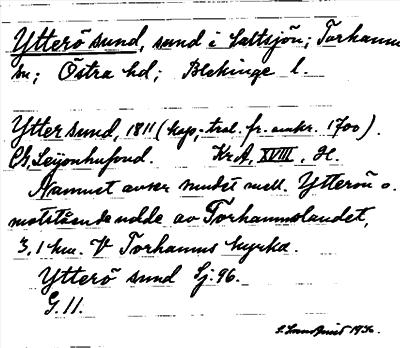 Ytterö sund, sund i Saltsjön; Torhamns
sn; Östra hd; Blekinge l.
Ytter sund, 1811 (kop.-tral. fr. omkr. 1700).
Ch. Leijonhufvud. KrA, XVIII, H.
Namnet avser sundet mell. Ytterön o.
motstående udde av Torhamnslandet,
3,1 km. V Torhamns kyrka.
Ytterö sund Sj. 96.
G. 11.